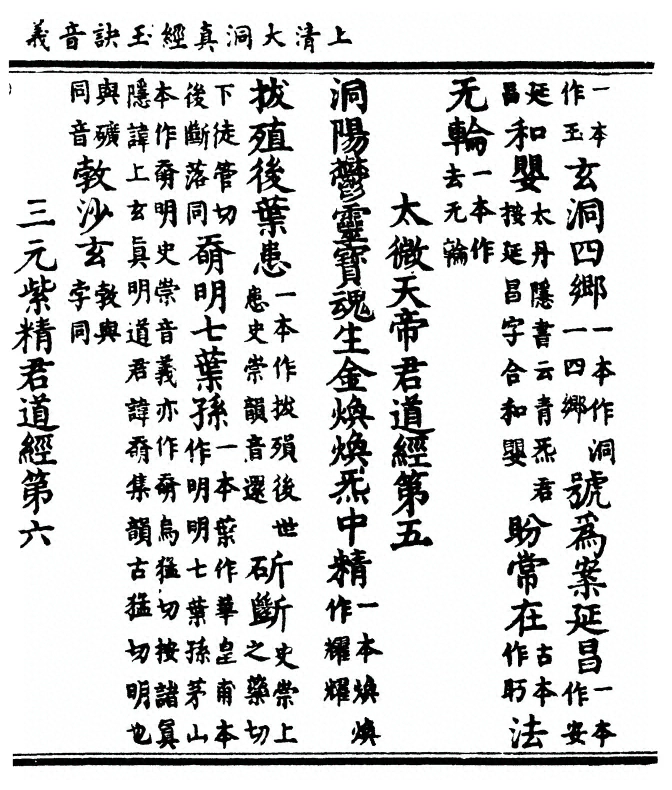 上清大洞真經玉訣音義
一本作玉玄洞四鄉一本作洞一四鄉號爲案延昌一本作安
延昌和嬰太丹隱書云青炁君按延昌字合和嬰盼常在古本作眄法
无輪一本作去无輪
太微天帝君道經第五
洞陽鬱靈寶魂生金煥煥炁中精一本煥煥作耀耀
拔殖後葉患一本作拔殞後世患史崇韻音還斫斷史崇上之藥切
下徒管切後斷落同奛明七葉孫一本葉作華皇甫本作明明七葉孫茅山
本作奛明史崇音義亦作奛烏猛切按諸真隱諱上玄真明道君諱奛集韻古猛切明也
與礦同音沙玄與字同
三元紫精君道經第六